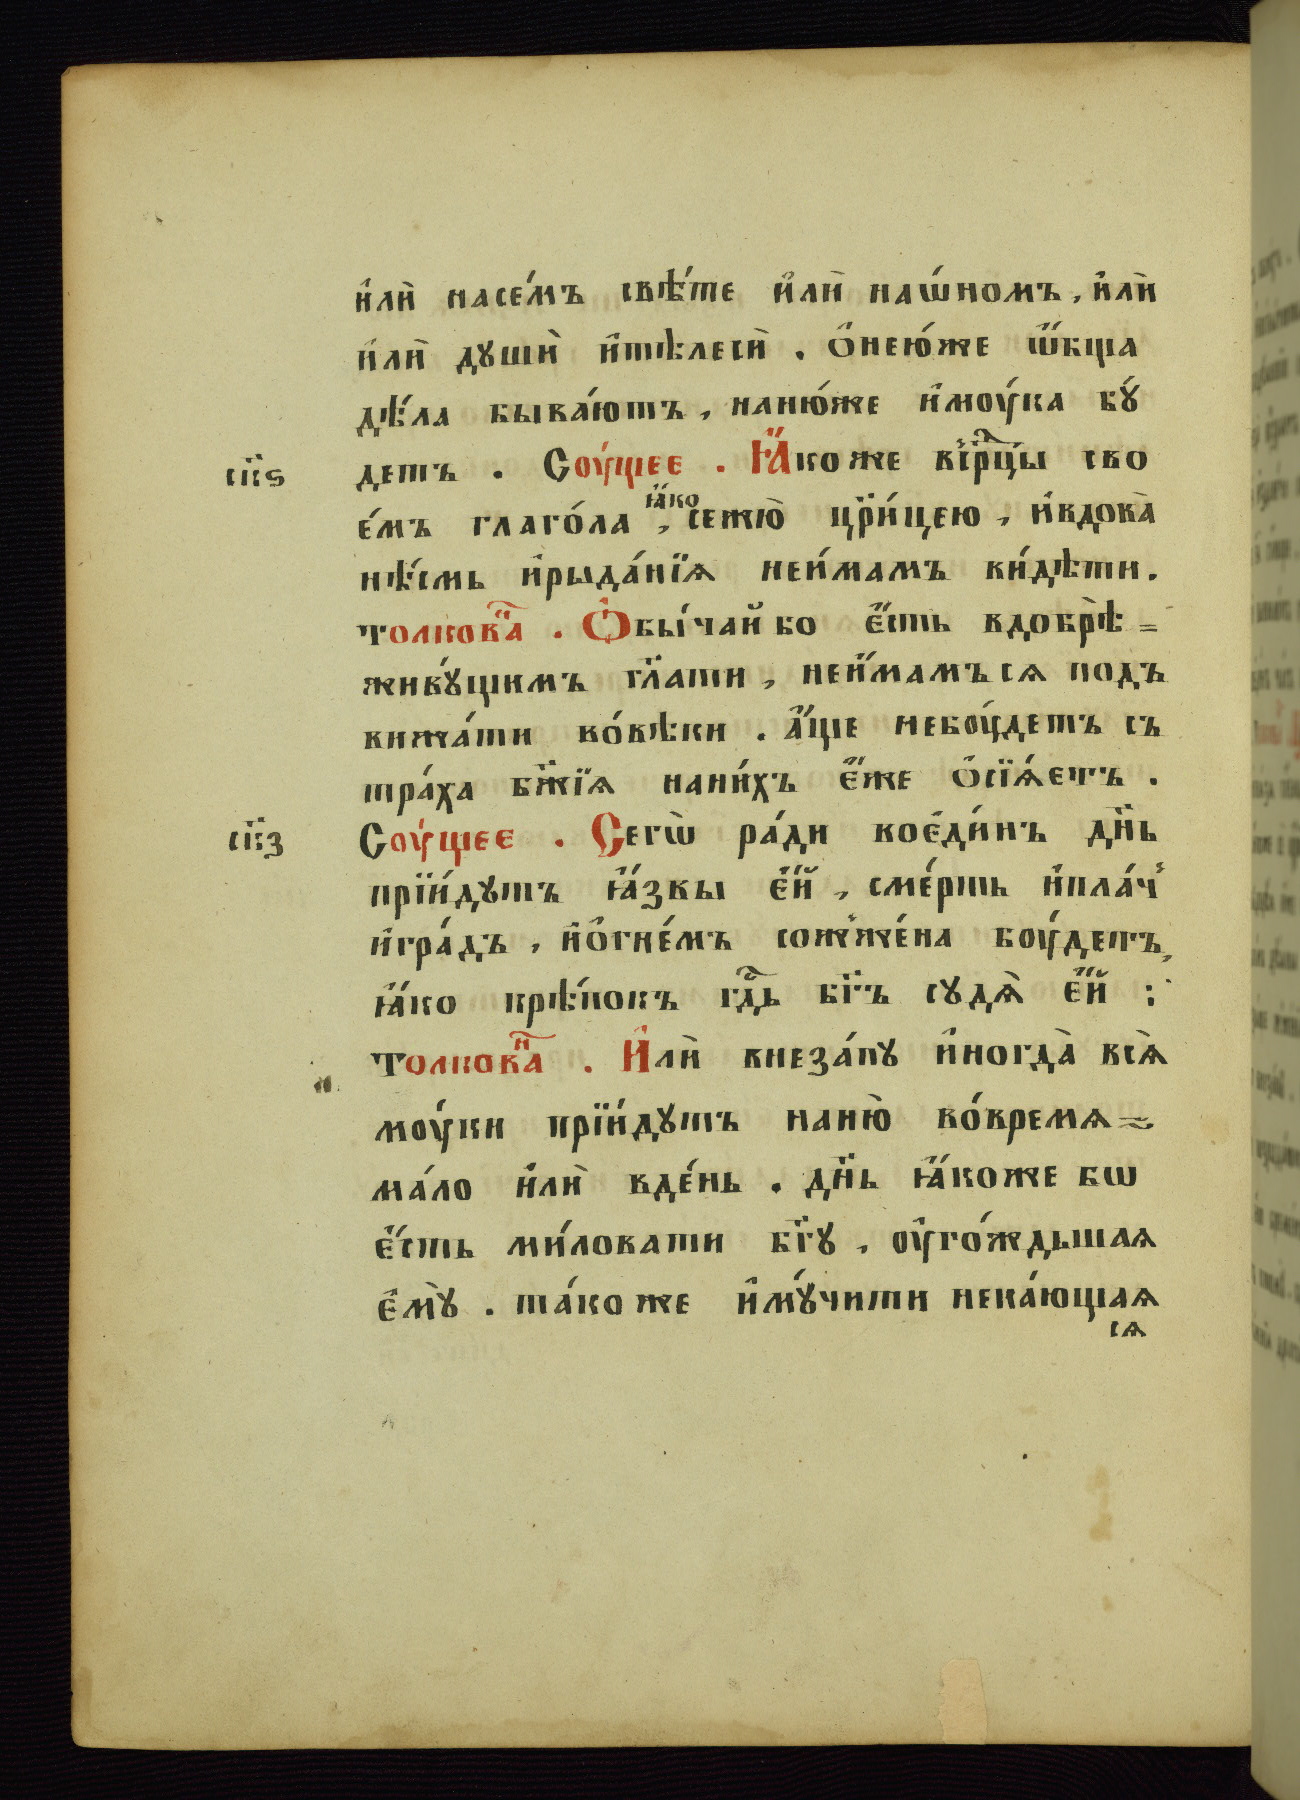 и҆́лѝ насе́мъ свѣ́те и҆лѝ наѡ҆́номъ, и҆лѝ
и҆́лѝ душѝ и҆тѣлесѝ . ѻ҆неюже ѿвѣща
дѣ́ла быва́ютъ, наню́же и҆моу́ка бꙋ́
скѕ҃ детъ . Соу́щее . Ꙗ҆́коже всрⷣцы сво
е́мъ глаго́ла, ꙗ҆́ко сежю̀ цр҃и́цею, и҆вдова̀
нѣ́смь и҆рыда́нїѧ неи́мамъ ви́дѣти.
толкова . Ѻ҆бы́чай бо є҆́сть вдобрѣ̀ =
живу́щимъ гл҃ати, неи҆́мамъ сѧ подъ
вижа́ти во́вѣки . а҆́ще небоу́детъ съ
тра́ха бж҃їѧ нани́хъ є҆́же ѻ҆сїѧ́етъ .
скз҃ Соу́щее . Сегѡ̀ ра́ди воє҆ди́нъ дн҃ь
прїи́дутъ ꙗ҆́звы є҆́й, сме́рть и҆пла́ч
и҆гра́дъ, и҆ѻ҆гне́мъ сожже́на боу́детъ,
ꙗ҆́ко крѣ́покъ гдⷭ҇ь бг҃ъ судѧ̀ є҆́й :
толковⷩа . И҆лѝ внеза́пу и҆ногда̀ всѧ̀
моу́ки прїи́дутъ наню̀ во́времѧ =
ма́ло и҆лѝ вде́нь . дн҃ь ꙗ҆́коже бѡ
є҆́сть ми́ловати бг҃у, оу҆го́ждьшаѧ
є҆мꙋ̀ . та́коже и҆мꙋ́чити нека́ющаѧ
сѧ